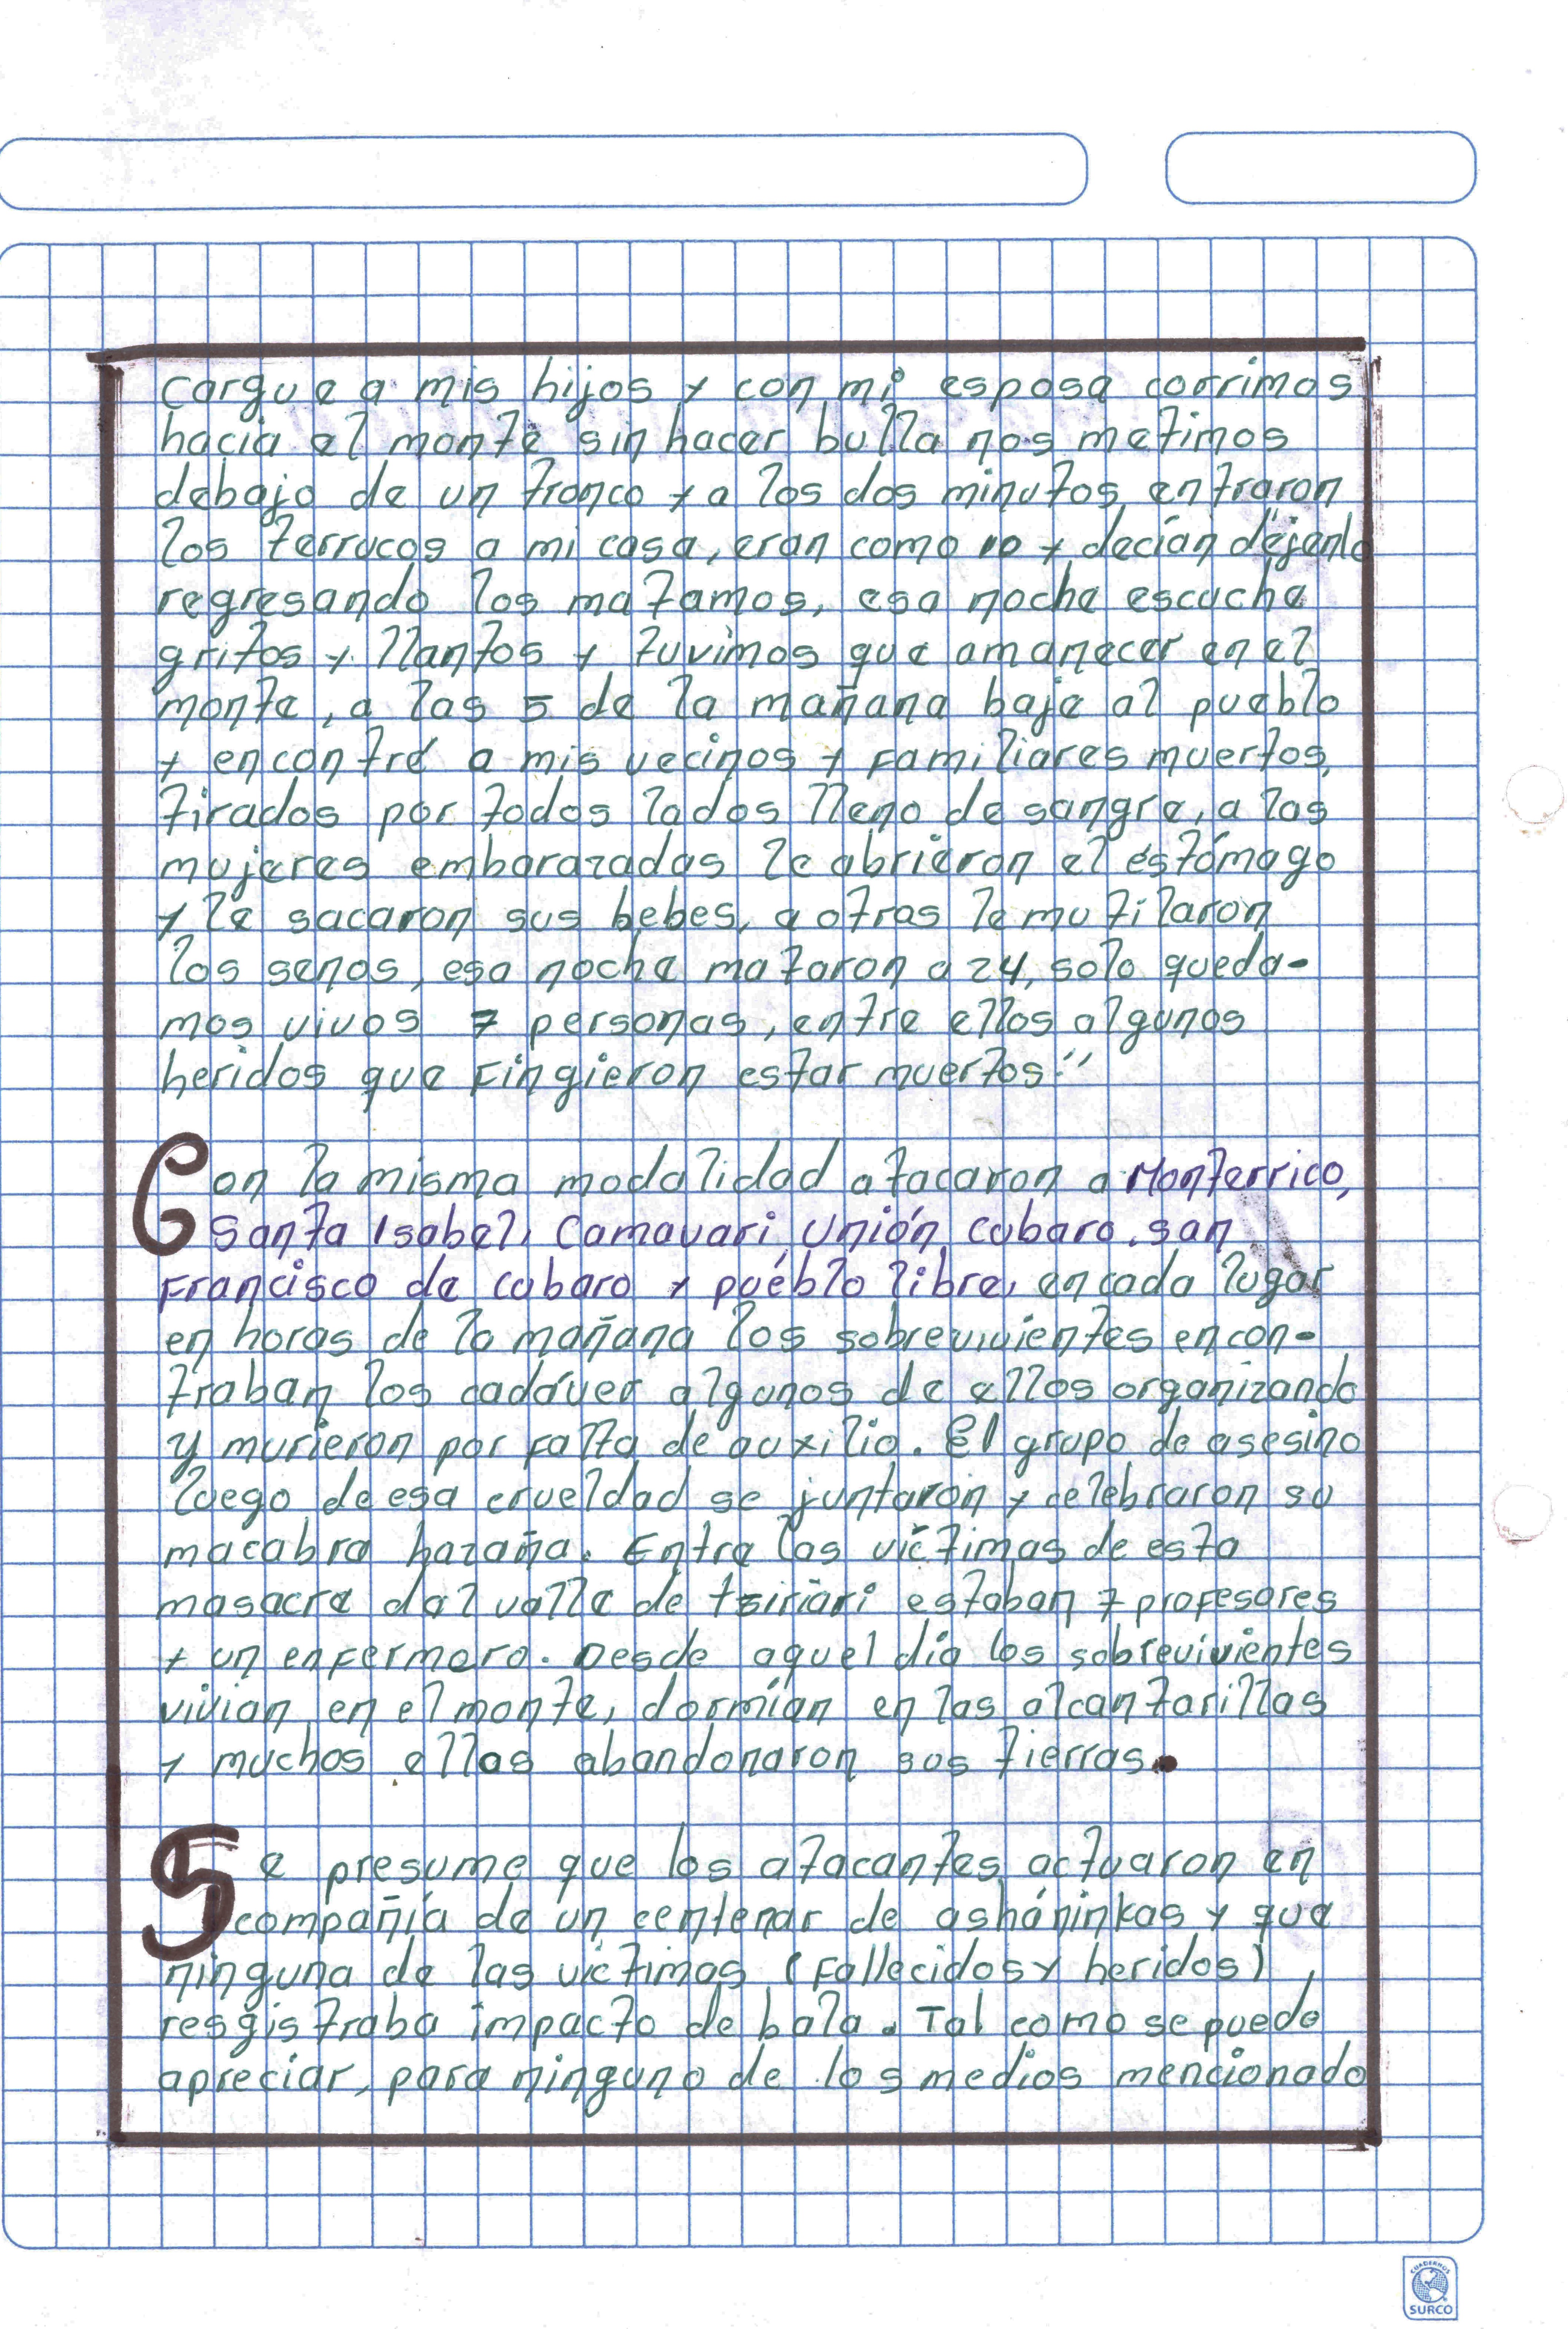 cargue a mis hijos y con mi esposa corrimos
hacia el monte sin hacer bulla nos metimos
debajo de un tronco y a los dos minutos entraron
los terrucos a mi casa, eran como 10 y decían "déjenlo
regresando los matamos, esa noche escuche
gritos y llantos y tuvimos que amanecer en el
monte, a las 5 de la mañana baje al pueblo
y encontré a mis vecinos y familiares muertos,
tirados por todos lados lleno de sangre, a las
mujeres embarazadas le abrieron el estómago
y le sacaron sus bebes, a otras le mutilaron
los senos, esa noche mataron a 24, solo queda-
mos vivos 7 personas, entre ellos algunos
heridos que fingieron estar muertos."
Con la misma modalidad atacaron a Monterrico,
Santa Isabel, Camavari, Unión Cubaro, San
Francisco de Cubaro y pueblo libre, en cada lugar
en horas de la mañana los sobrevivientes encon-
traban los cadáver algunos de ellos organizando
y murieron por falta de auxilio. El grupo de asesino
luego de esa crueldad se juntaron y celebraron su
macabra hazaña. Entre las víctimas de esta
masacre del valle de tsiriari estaban 7 profesores
y un enfermero. Desde aquel día los sobrevivientes
vivian en el monte, dormían en las alcantarillas
y muchos ellos abandonaron sus tierras.
Se presume que los atacantes actuaron en
compañía de un centenar de asháninkas y que
ninguna de las víctimas (fallecidos y heridos)
resgistraba impacto de bala. Tal como se puede
apreciar, para ninguno de los medios mencionado
CUADERNOS
SURCO